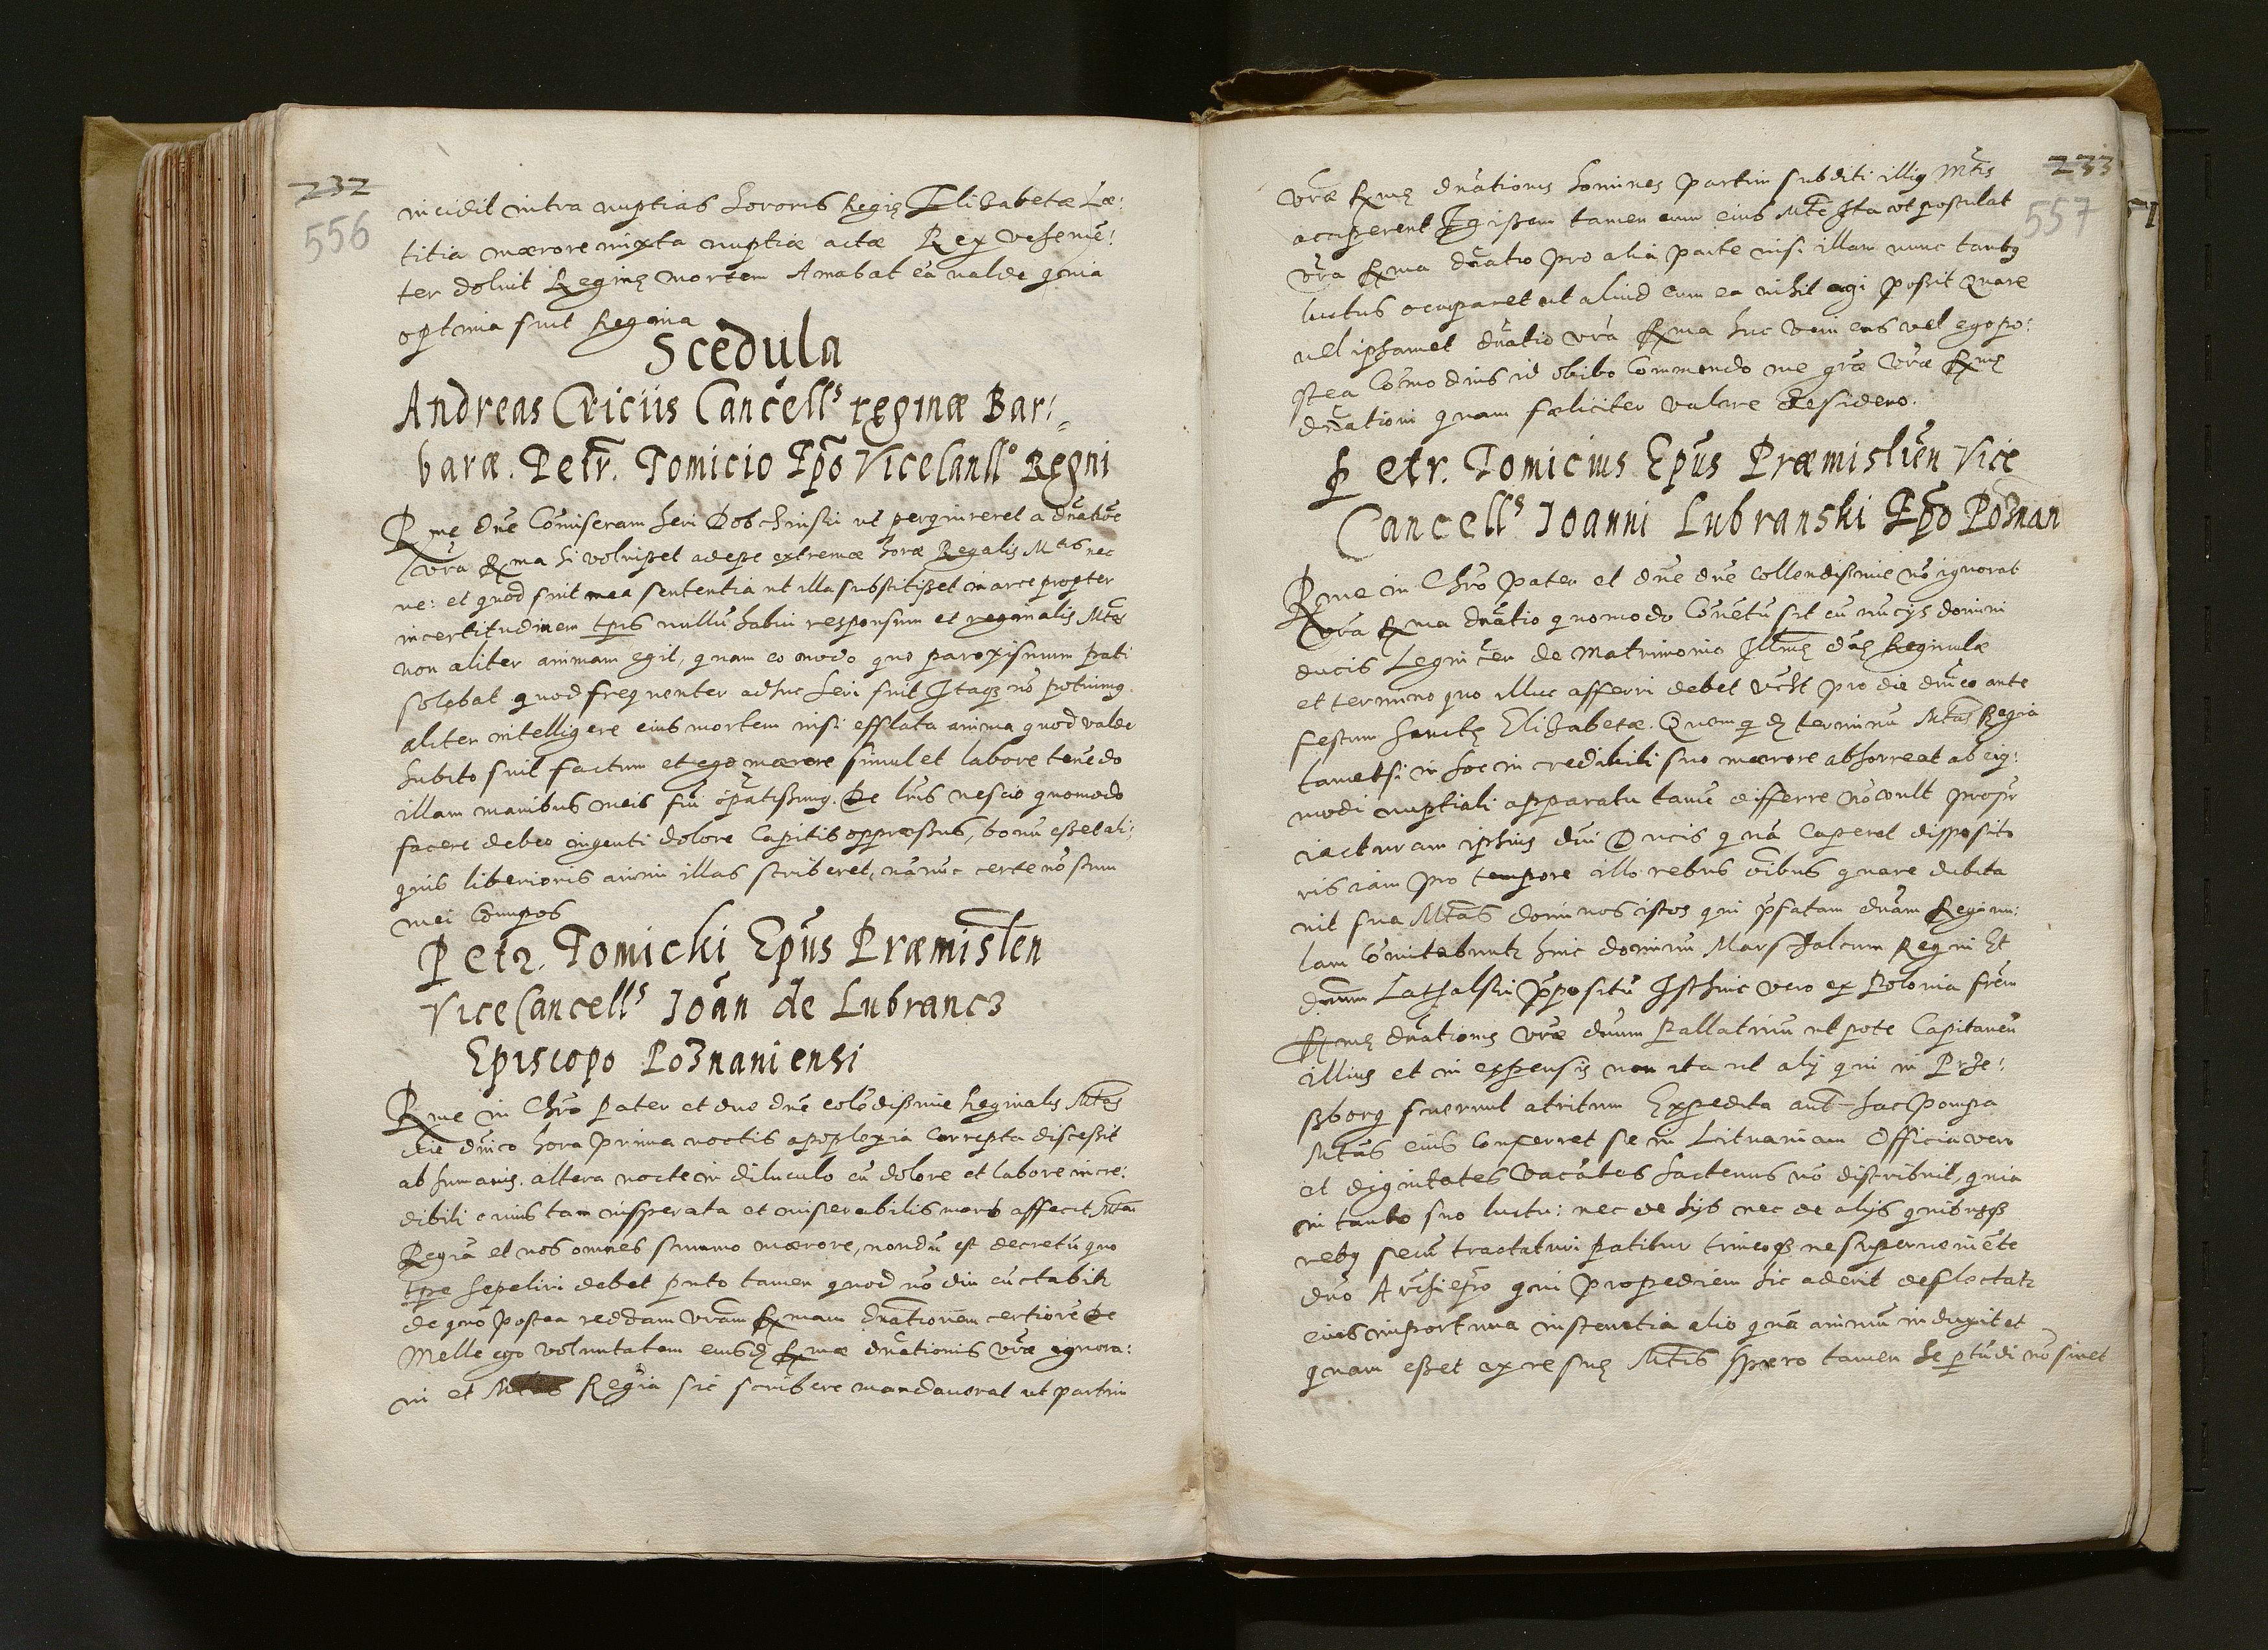 232
556
incidit intra nuptias sororis Regię Elizabetæ Læ:
titia mærore mixta nuptiæ actæ Rex vehemē:
ter doluit Reginę mortem Amabat eā valde quia
optima fuit Regina
Scedula
Andreas Criciis Cancells reginæ Bar:
baræ. Petr. Tomicio Ep̃o ViceCanllo Regni
Rme dne Comiseram heri Dobchinski ut perquireret a dnatōe
vrā Rxma si voluißet adeße extremæ horæ Regalis Mtis nec
ne: et quod fuit mea sententia ut illa substitißet in arce propter
incertitudinem tp̃is nullū habui responsum et reginalis Mtas
non aliter animam egit, quam eo modo quo paroxismum pati
solebat quod frequenter adhuc heri fuit Itaqȝ nō potuimꝰ
aliter intelligere eius mortem nisi efflata anima quod valde
subito fuit factum et ego mærore simul et labore tenēdo
illam manibus meis fui op̃atißimꝰ. De lris nescio quomodo
facere debeo ingenti dolore Capitis oppræßus, bonū eßet ali:
quis liberioris animi illas scriberet, nā nūc certe nō sum
mei Compos
Petr. Tomicki Ep̃us Præmislen
ViceCancells Ioān de Lubrancz
Episcopo Poznaniensi
Rme in Chrō Pater et dne dne colēdißime Reginalis Mtas
die dnico hora prima noctis apoplexia correpta disceßit
ab humanis. altera nocte in diluculo cū dolore et labore incre:
dibili cuius tam insperata et miserabilis mors affecit Mtem
Regiā et nos omnes summo mærore, nondū est decretū quo
tp̃re sepeliri debet puto tamen quod nō diu cūctabit
de quo postea reddam vram Rxmam dnationem certiorē De
Melle ego voluntatem eiusdē Rxmæ dnationis vræ ignora:
ui et Regia sic scribere mandauerat ut partim
233
557
vræ Rxmę dnationis homines partim subditi illiꝰ Mtis
acciperent Egißem tamen cum eius Mte Ita ut postulat
vra Rxma dnatio pro alia parte nisi illam nunc tantꝰ
luctus occuparet ut aliud cum ea nihil agi poßit Quare
uel ipsamet dnatio vra Rxma huc veniens vel ego po:
stea Cōmodius id obibo Commendo me græ vræ Rxmę
dnationi quam fæliciter valere desidero.
Petr. Tomicius Ep̃us Præmislien Vice
Cancells Ioanni Lubranski Ep̃o Poznan
Rme in Chrō Pater et dne dne collendißime nō ignorat
vra Rxma dnatio quomodo Cōuētū sit cū nūcys domini
ducis Legnicen de Matrimonio Illmę dnę Reginulæ
et termino quo illuc afferri debet pro die dnico ante
festum Sanctę Elizabetæ. Quem qdē terminū Mtas Regia
tametsi in hoc incredibili suo mærore abhorreat ab eiꝰ:
modi nuptiali apparatu tamē differre nō vult propr
iacturam ipsius dni Ducis quā caperet disposito
ris iam pro tempore illo rebus oībus quare dubita
uit sua Mtas dominos istos qui p̃fatam dnam Reginu:
lam cōmitabuntr hinc dominū Marsalcum Regni Et
dnum Latalski p̃positū Isthinc vero ex Polonia frem
Rxmę dnationis vræ dnum Pallatinū ut pote Capitaneū
illius et in expensis non ita ut alij qui in Prze:
ßborg fuerunt atritum Expedita aut hac pompa
Mtas eius conferret se in Lituaniam Officia vero
et dignitates vacātes hactenus nō distribuit, quia
in tanto suo luctu: nec de hijs nec de alijs quibusqß
rebꝰ secū tractatum patitur timeoqȝ ne superueniēte
dno Archiepo qui propediem hic aderit deflectatr
eius importuna instantia alio quā animū induxit et
quam eßet ex re suę Mtis spero tamen se ptudi nō sinet